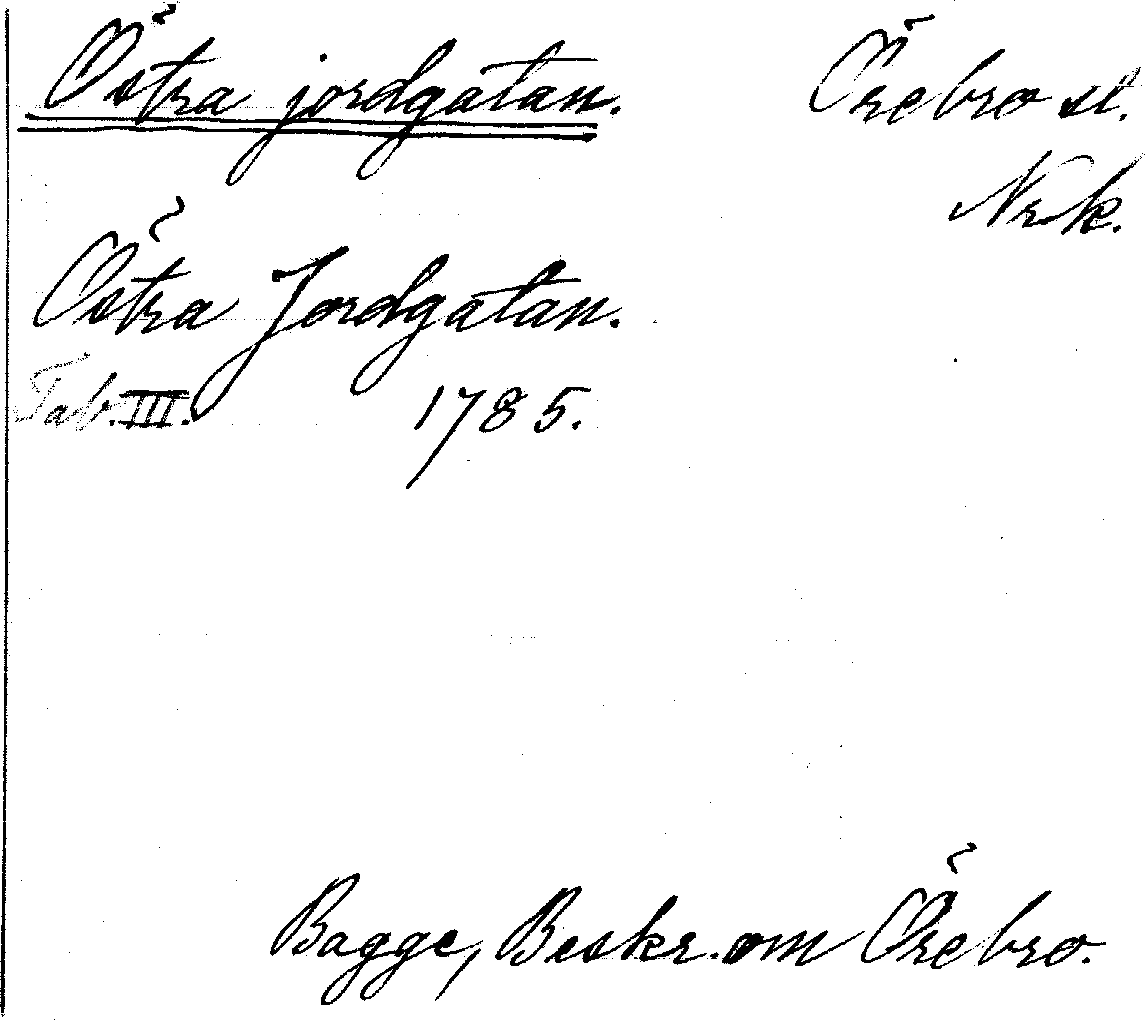 Östra jordgatan. Örebro st.
Nrk.
Östra Jordgatan.
Tab. III. 1785.
Bagge, Beskr. om Örebro.